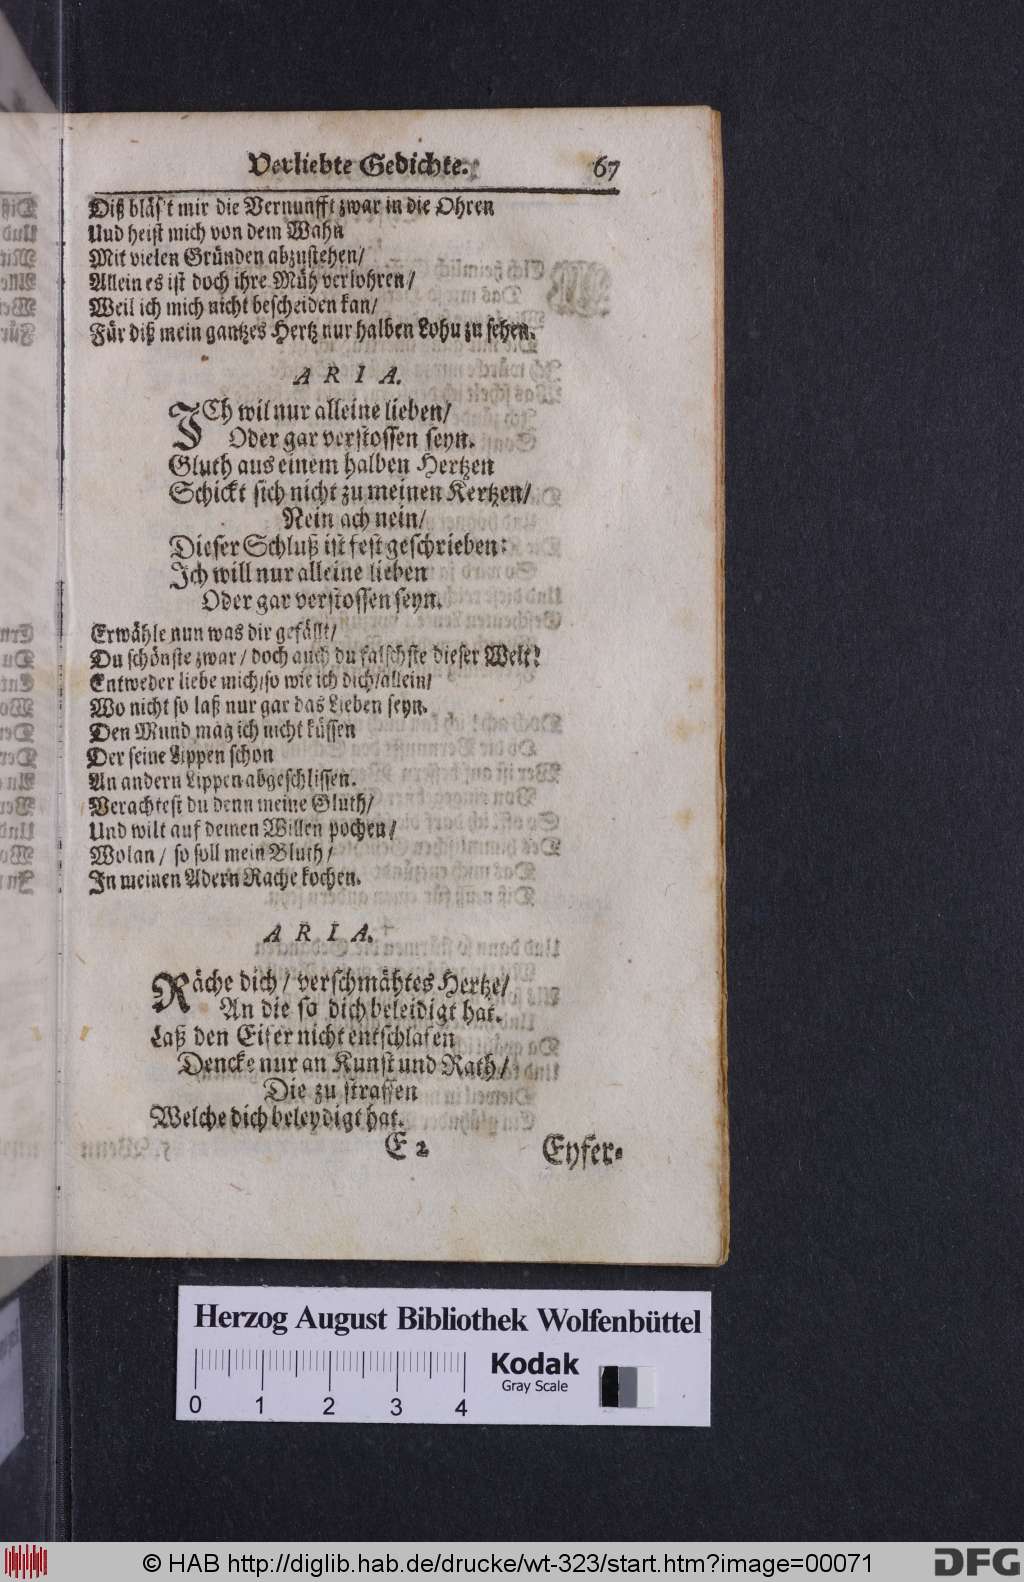 Verliebte Gedichte. 67
Diß bläs't mir die Vernunfft zwar in die Ohren
Uud heist mich von dem Wahn
Mit vielen Gründen abzustehen/
Allein es ist doch ihre Müh verlohren/
Weil ich mich nicht bescheiden kan/
Für diß mein gantzes Hertz nur halben Lohu zu sehen.
ARIA.
ICh wil nur alleine lieben/
Oder gar verstossen seyn.
Gluth aus einem halben Hertzen
Schickt sich nicht zu meinen Kertzen/
Nein ach nein/
Dieser Schluß ist fest geschrieben:
Ich will nur alleine lieben
Oder gar verstossen seyn.
Erwähle nun was dir gefällt/
Du schönste zwar / doch auch du falschste dieser Welt!
Entweder liebe mich/so wie ich dich/allein/
Wo nicht so laß nur gar das Lieben seyn.
Den Mund mag ich nicht küssen
Der seine Lippen schon
An andern Lippen abgeschlissen.
Verachtest du denn meine Gluth/
Und wilt auf deinen Willen pochen/
Wolan / so soll mein Bluth/
In meinen Adern Rache kochen.
ARIA.
Räche dich / verschmähtes Hertze/
An die so dich beleidigt hat.
Laß den Eifer nicht entschlafen
Dencke nur an Kunst und Rath/
Die zu straffen
Welche dich beleydigt hat.
E 2 Eyfer-
Herzog August Bibliothek Wolfenbüttel
Kodak
Gray Scale
0 1 2 3 4
© HAB http://diglib.hab.de/drucke/wt-323/start.htm?image=00071
DFG